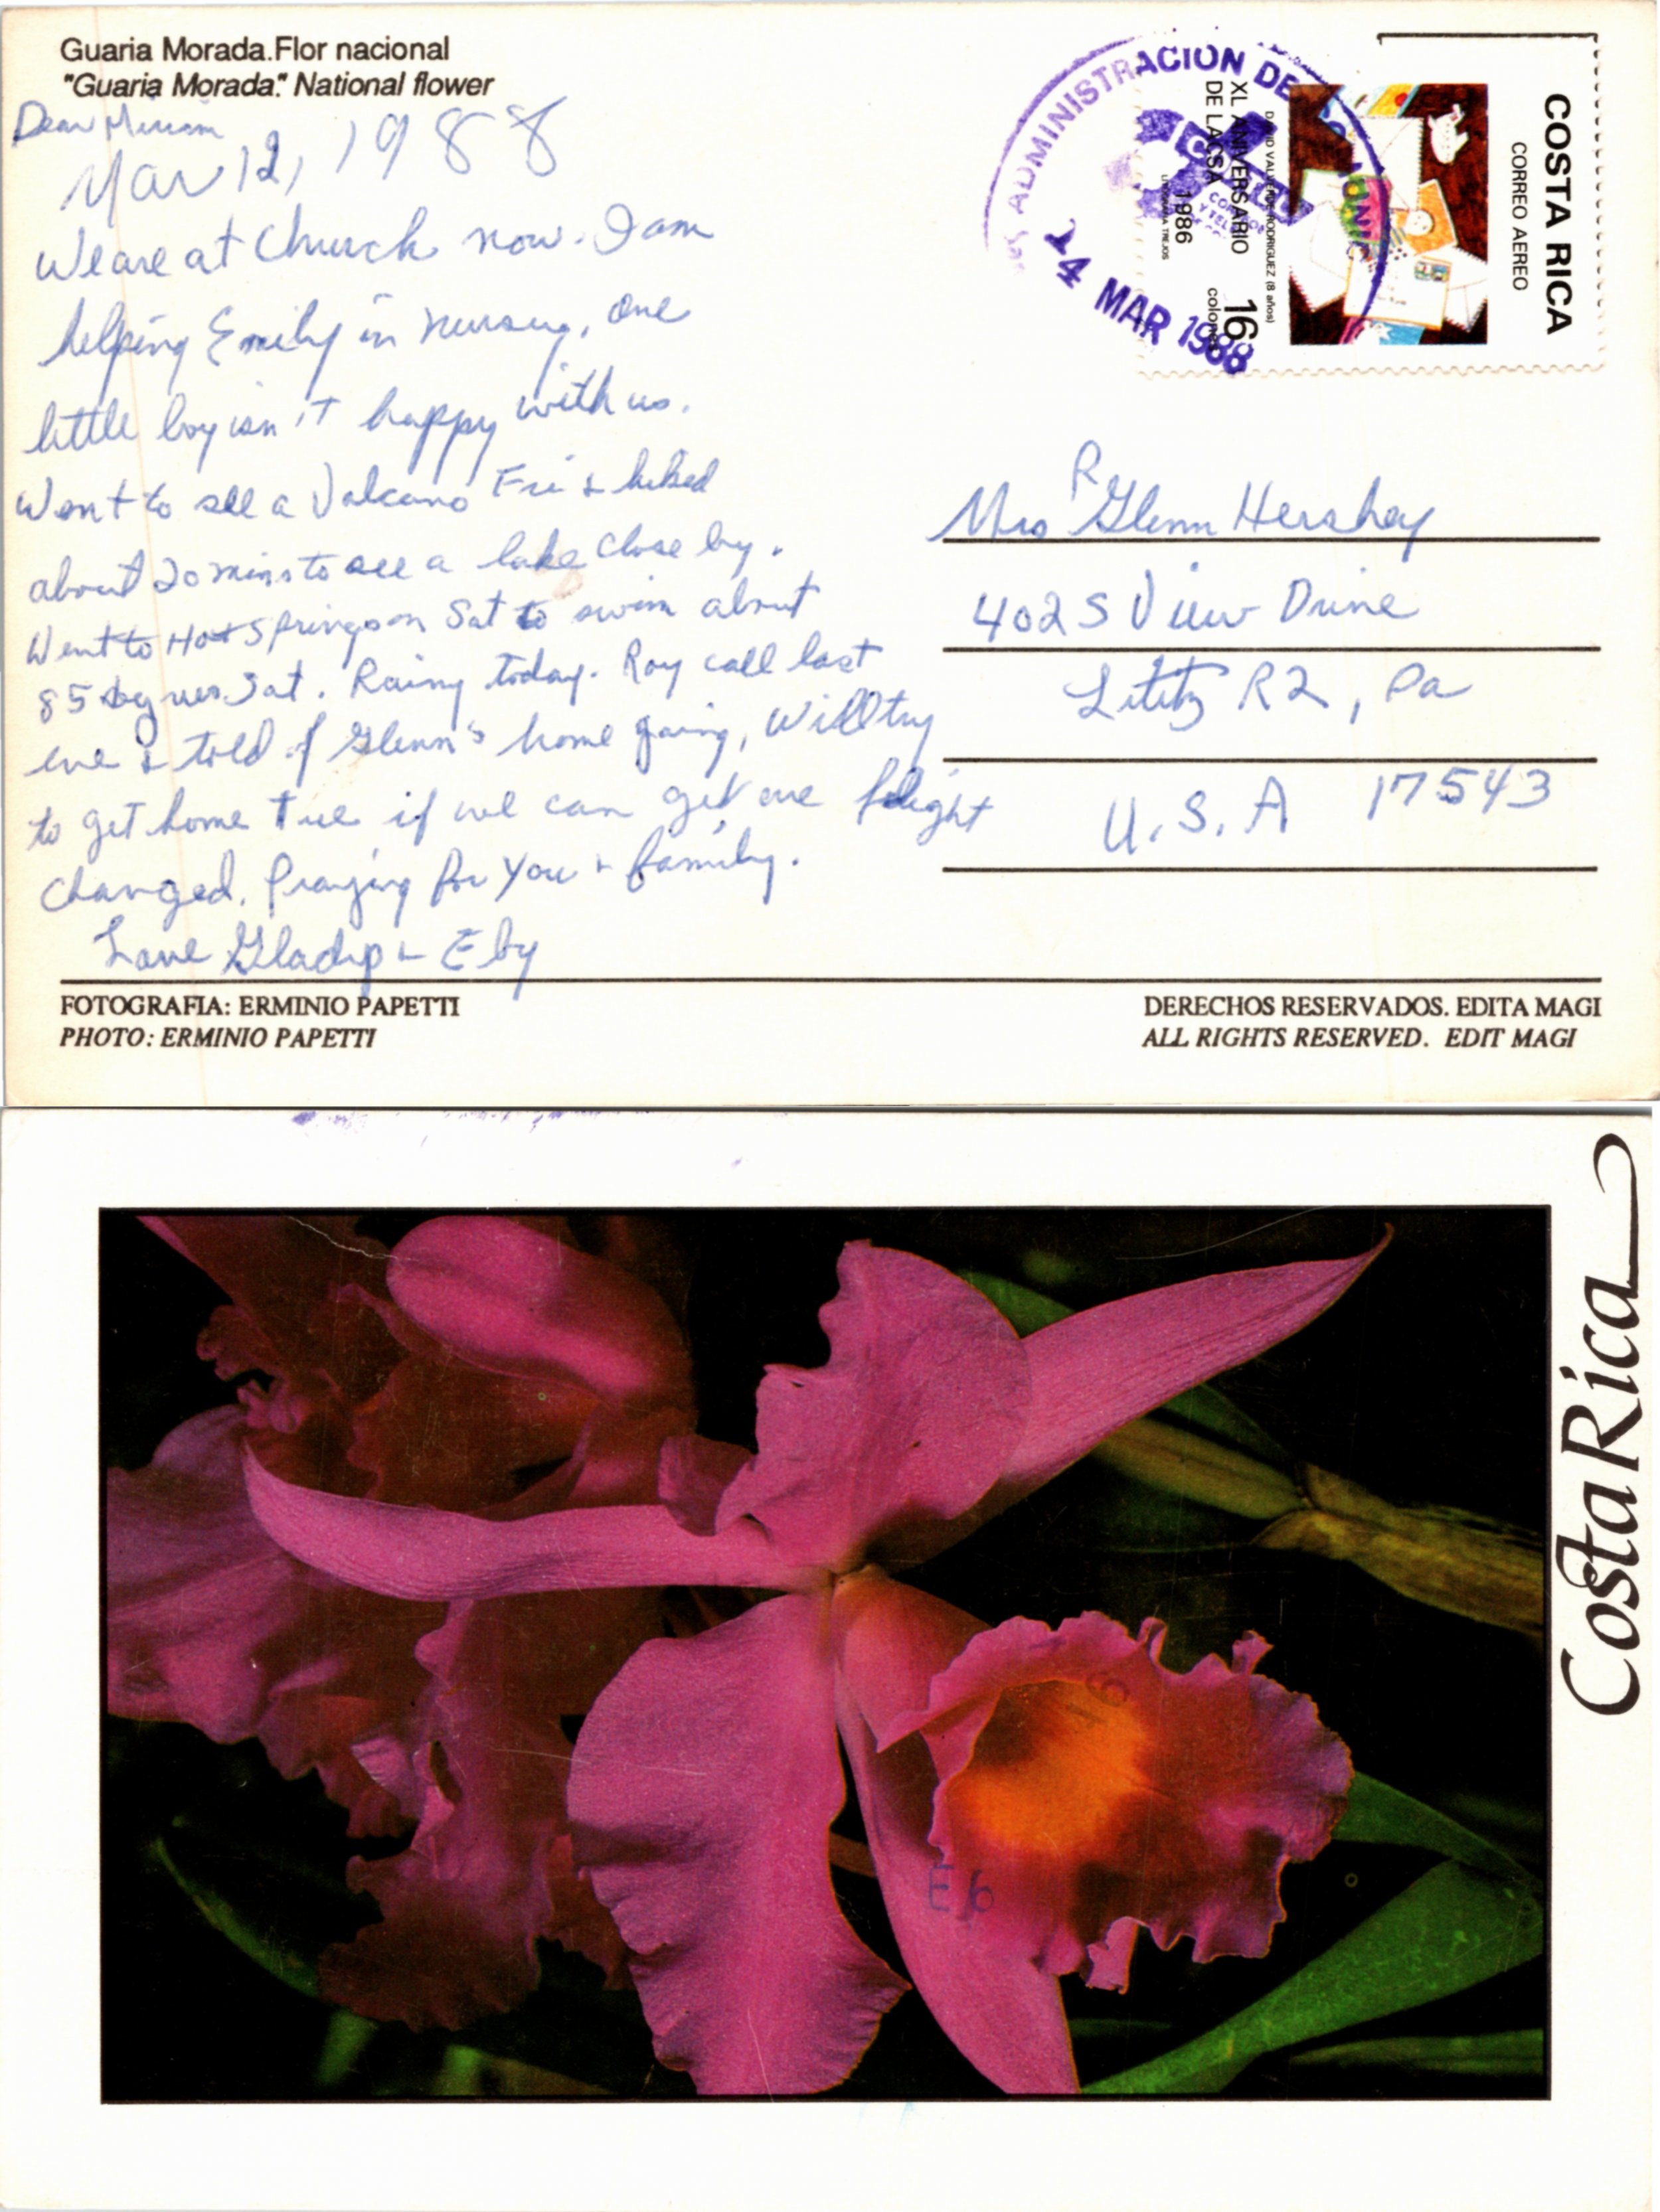 Guaria Morada.Flor nacional
"Guaria Morada." National flower
Dear Miriam
Mar 12, 1988
We are at Church now. I am
helping Emily in nursery, one
little boy isn't happy with us.
Went to see a Valcano Fri & hiked
about 20 mins to see a lake close by.
Went to Hot Springs on Sat to swim about
85 degrees Sat. Rainy today. Roy call last
eve & told of Glenn's home going, will try
to get home Tue if we can get our flight
changed. Praying for you & family.
Love Gladys & Eby
FOTOGRAFIA: ERMINIO PAPETTI
PHOTO: ERMINIO PAPETTI
ADMINISTRACION DE
14 MAR 1988
COSTA RICA
CORREO AEREO
RODRIGUEZ (8 años)
XL ANIVERSARIO
DE LACSA
1986
16
colones
Mrs R Glenn Hershey
402 S View Drive
Lititz R2, Pa
U.S.A 17543
DERECHOS RESERVADOS. EDITA MAGI
ALL RIGHTS RESERVED. EDIT MAGI
Costa Rica